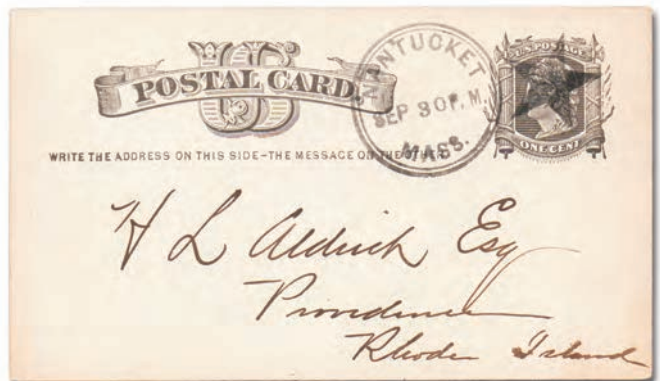 US
POSTAL CARD.
NANTUCKET
SEP 30 P.M.
MASS.
U.S. POSTAGE
ONE CENT
WRITE THE ADDRESS ON THIS SIDE-THE MESSAGE ON THE OTHER
H L Aldrich Esq
Providence
Rhode Island